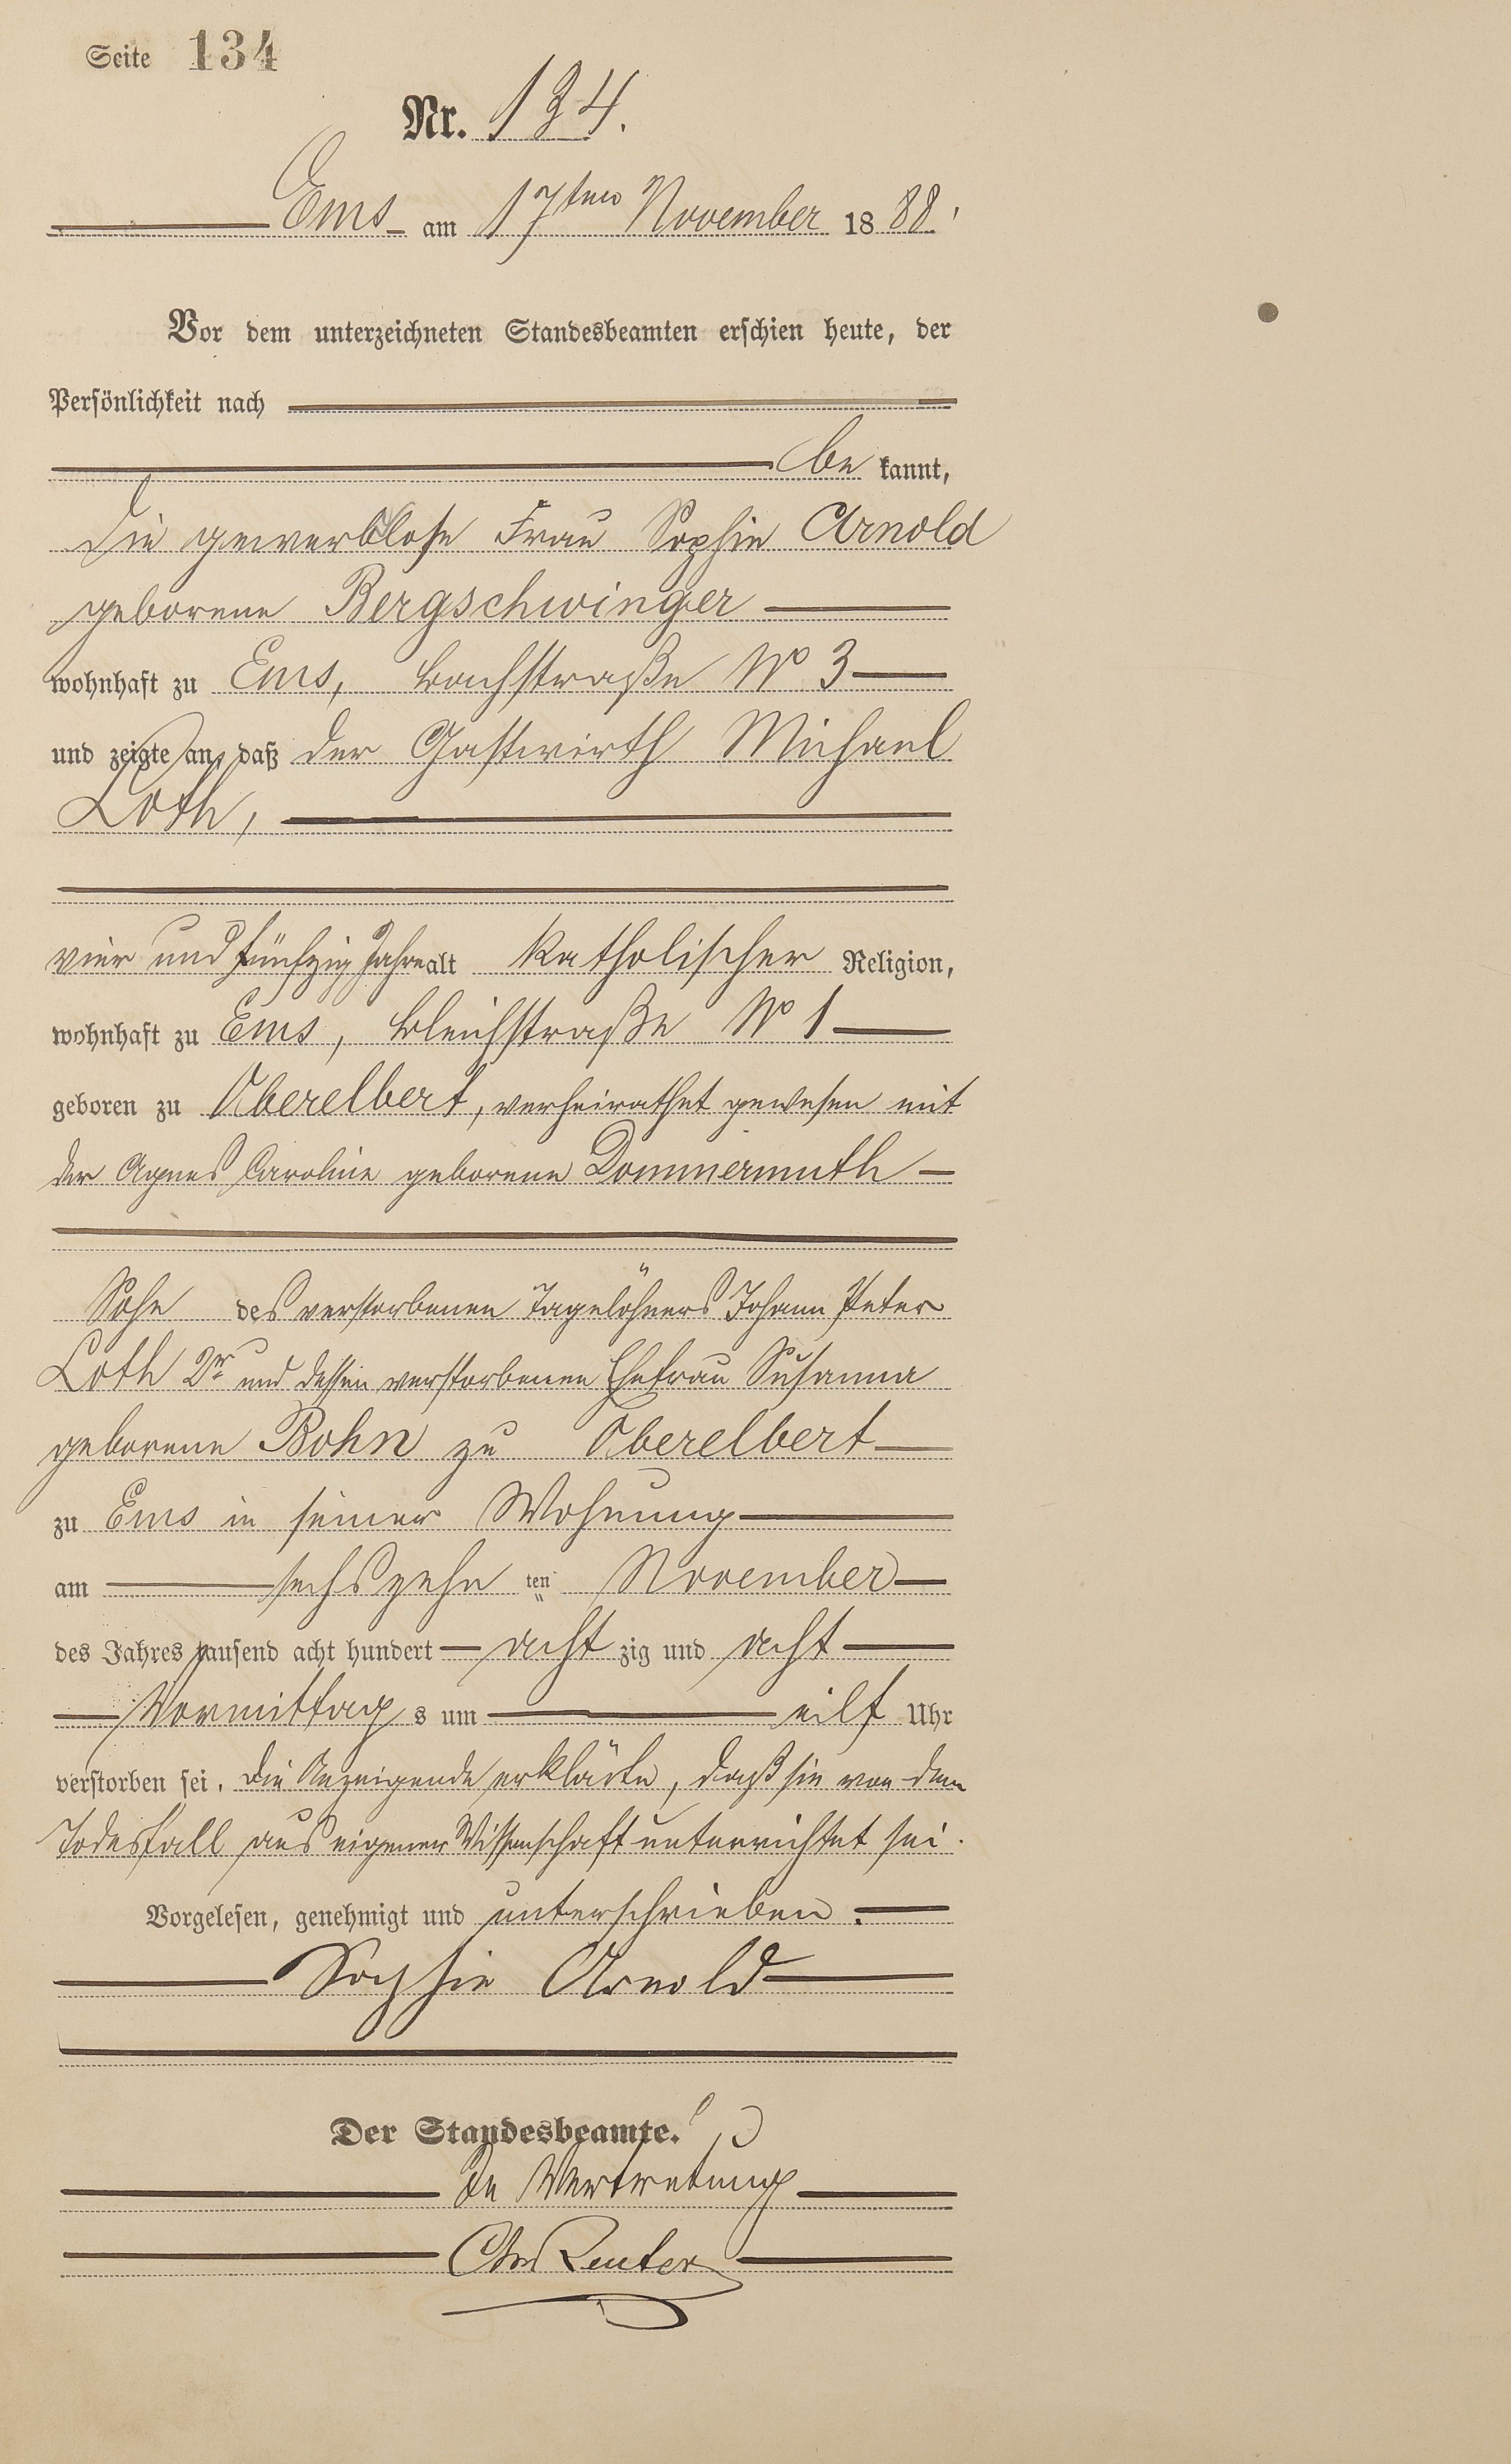 Seite 134
Nr. 134.
Ems am 17ten November 1888.
Vor dem unterzeichneten Standesbeamten erschien heute, der
Persönlichkeit nach
be kannt,
die gewerblose Frau Sophie Arnold
geborene Bergschwinger
wohnhaft zu Ems, Bachstraße No 3
und zeigte an, daß der Gastwirth Michael
Loth,
vier und fünfzig Jahre alt katholischer Religion,
wohnhaft zu Ems, Bleichstraße No 1
geboren zu Oberelbert, verheirathet gewesen mit
der Agnes Caroline geborene Dommermuth
Sohn des verstorbenen Tagelöhners Johann Peter
Loth 2r und dessen verstorbenen Ehefrau Susanna
geborene Bohn zu Oberelbert
zu Ems in seiner Wohnung
am sechszehn ten November
des Jahres tausend acht hundert acht zig und acht
Vormittag s um eilf Uhr
verstorben sei. Die Anzeigende erklärte, daß sie von dem
Todesfall aus eigener Wissenschaft unterrichtet sei.
Vorgelesen, genehmigt und unterschrieben.
Sophie Arnold
Der Standesbeamte.
In Vertretung
Reuter